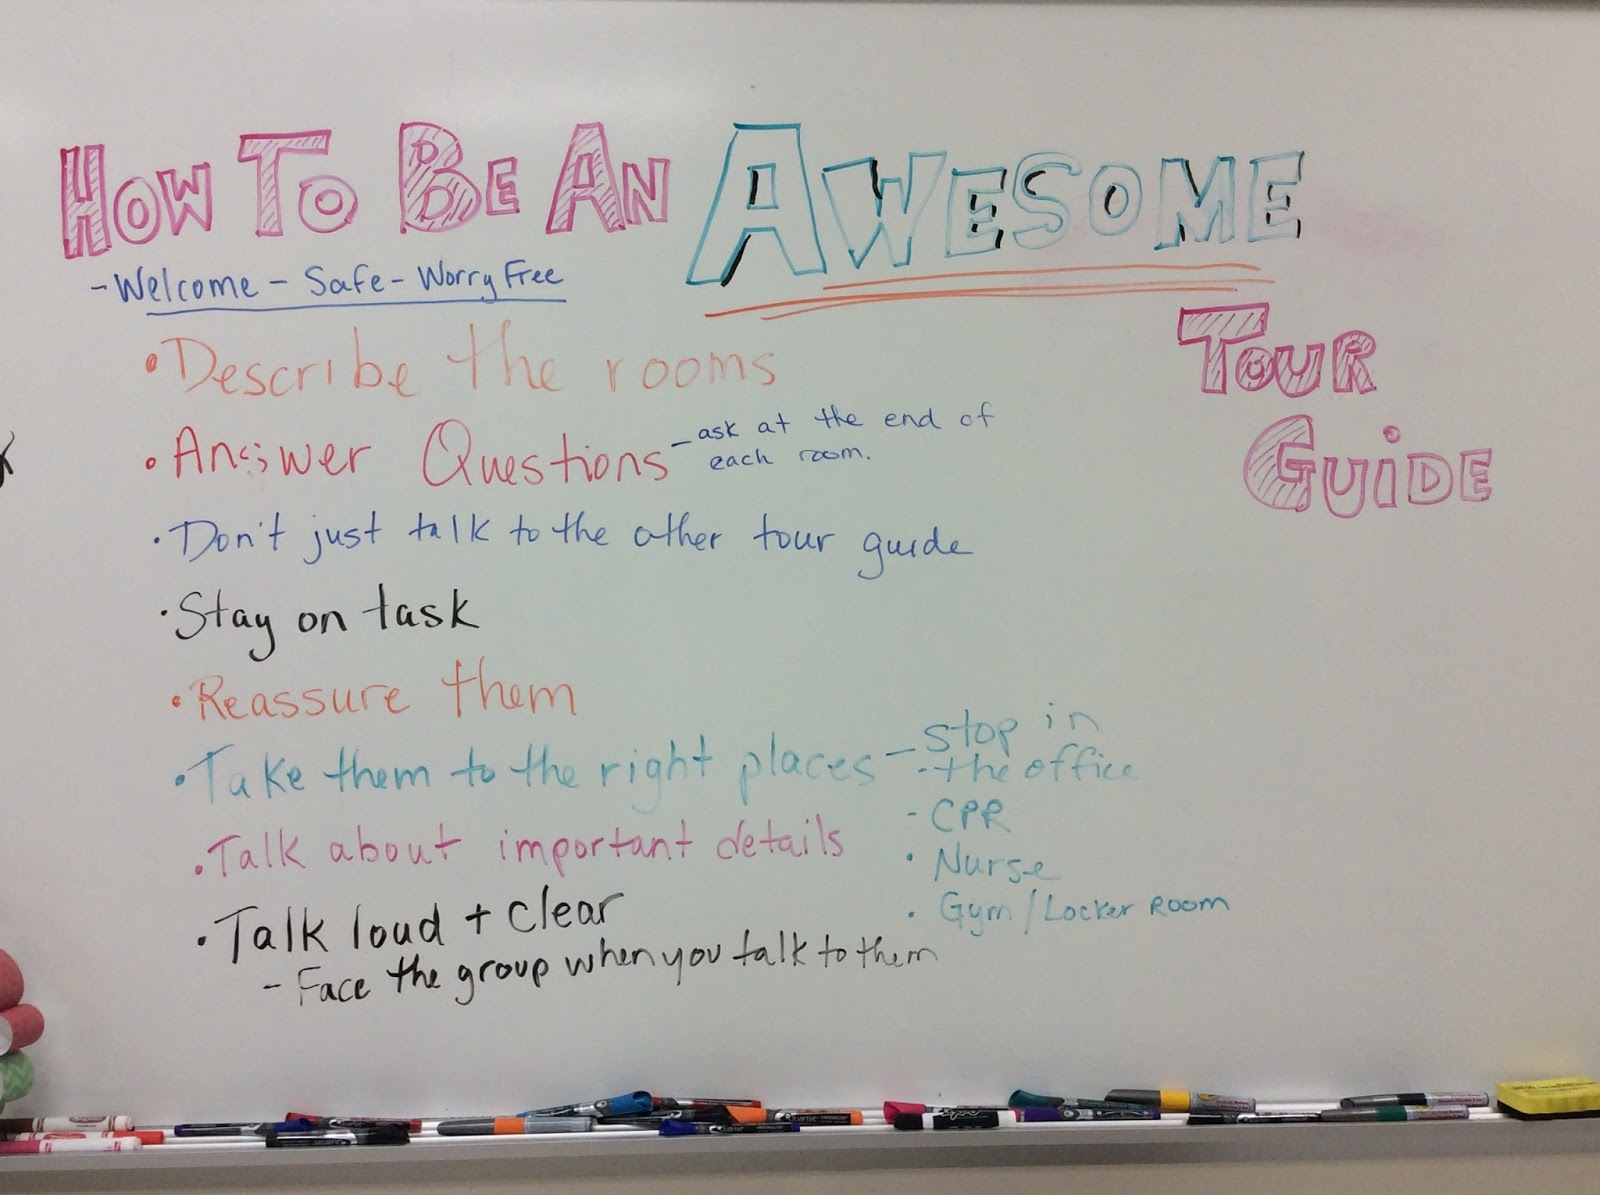 HOW TO BE AN AWESOME
TOUR
GUIDE
- Welcome - Safe - Worry Free
• Describe the rooms
• Answer Questions - ask at the end of
each room.
• Don't just talk to the other tour guide
• Stay on task
• Reassure them
• Take them to the right places - stop in
• the office
- CPR
• Nurse
• Gym / Locker Room
• Talk about important details
• Talk loud + clear
- Face the group when you talk to them